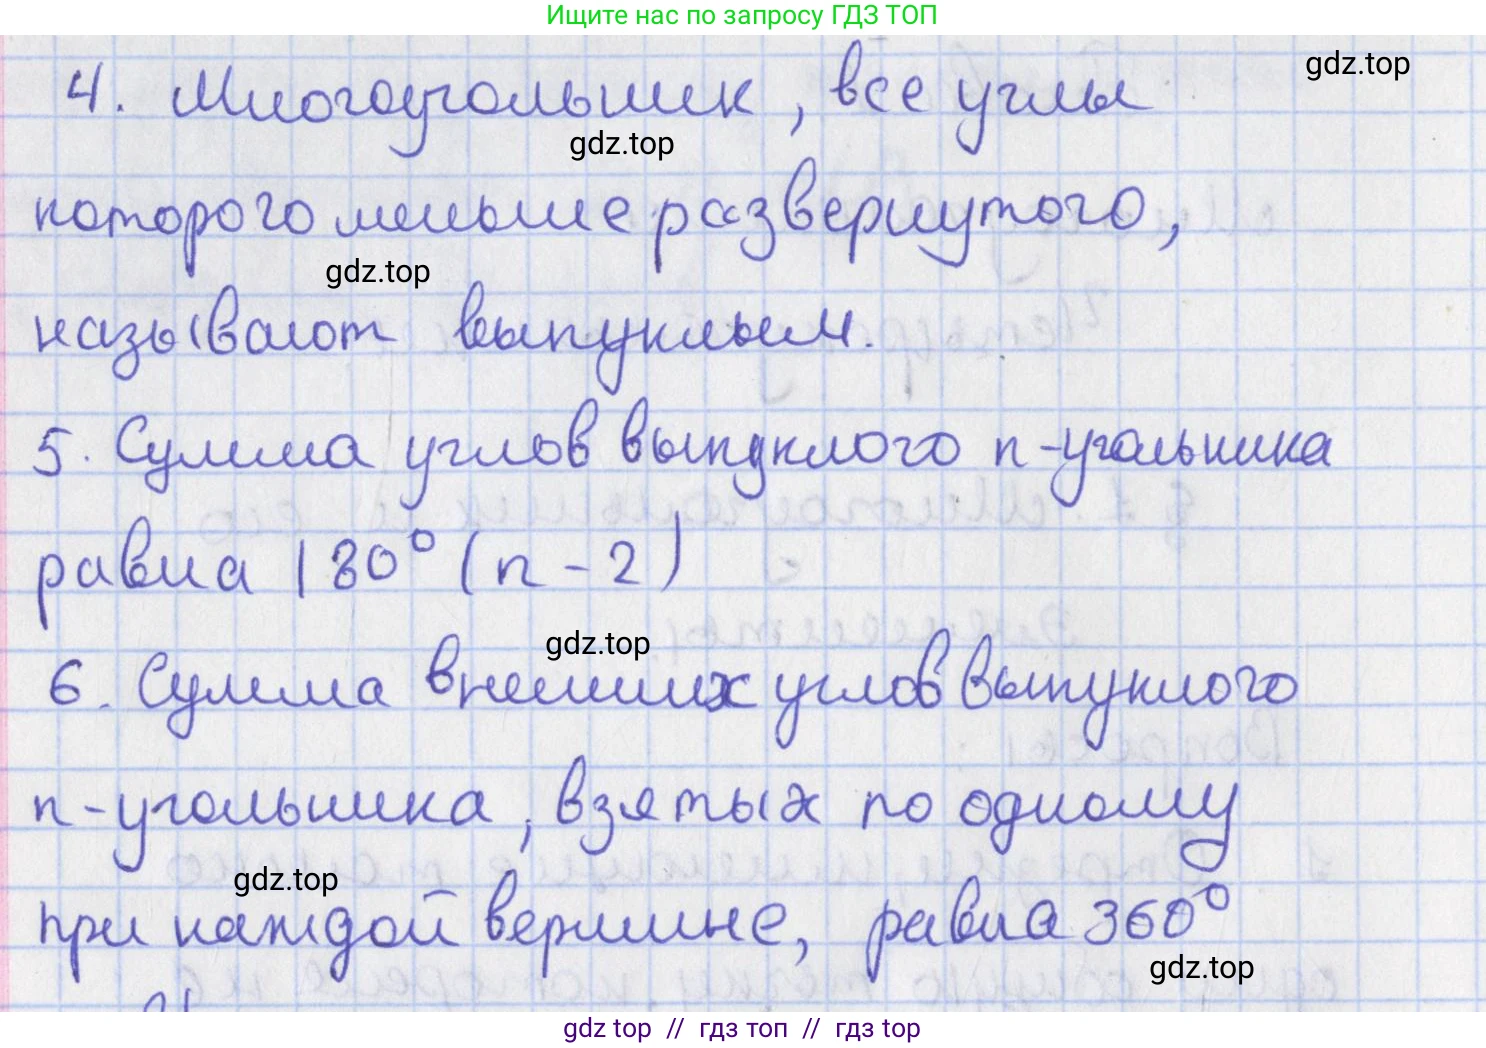 Ищите нас по запросу ГДЗ ТОП
gdz.top
4. Многоугольник, все углы
gdz.top
которого меньше развернутого,
gdz.top
называют выпуклым.
5. Сумма углов выпуклого n-угольника
равна 180° (n - 2)
gdz.top
6. Сумма внешних углов выпуклого
n-угольника, взятых по одному
gdz.top
при каждой вершине, равна 360°
gdz.top
gdz top // гдз топ // гдз top